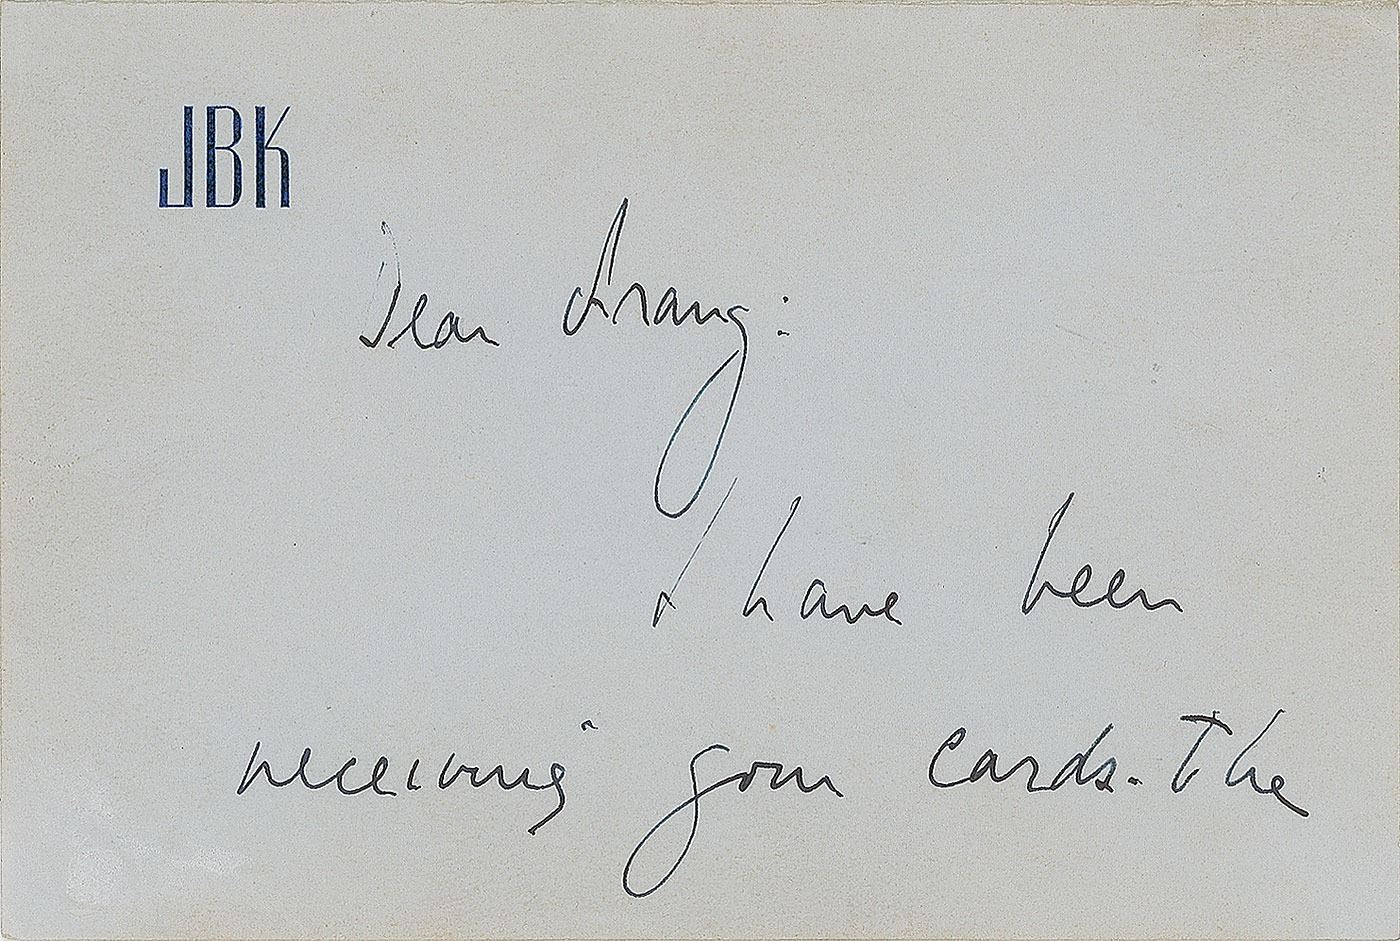 JBK
Dear
I have been
receiving your cards. The